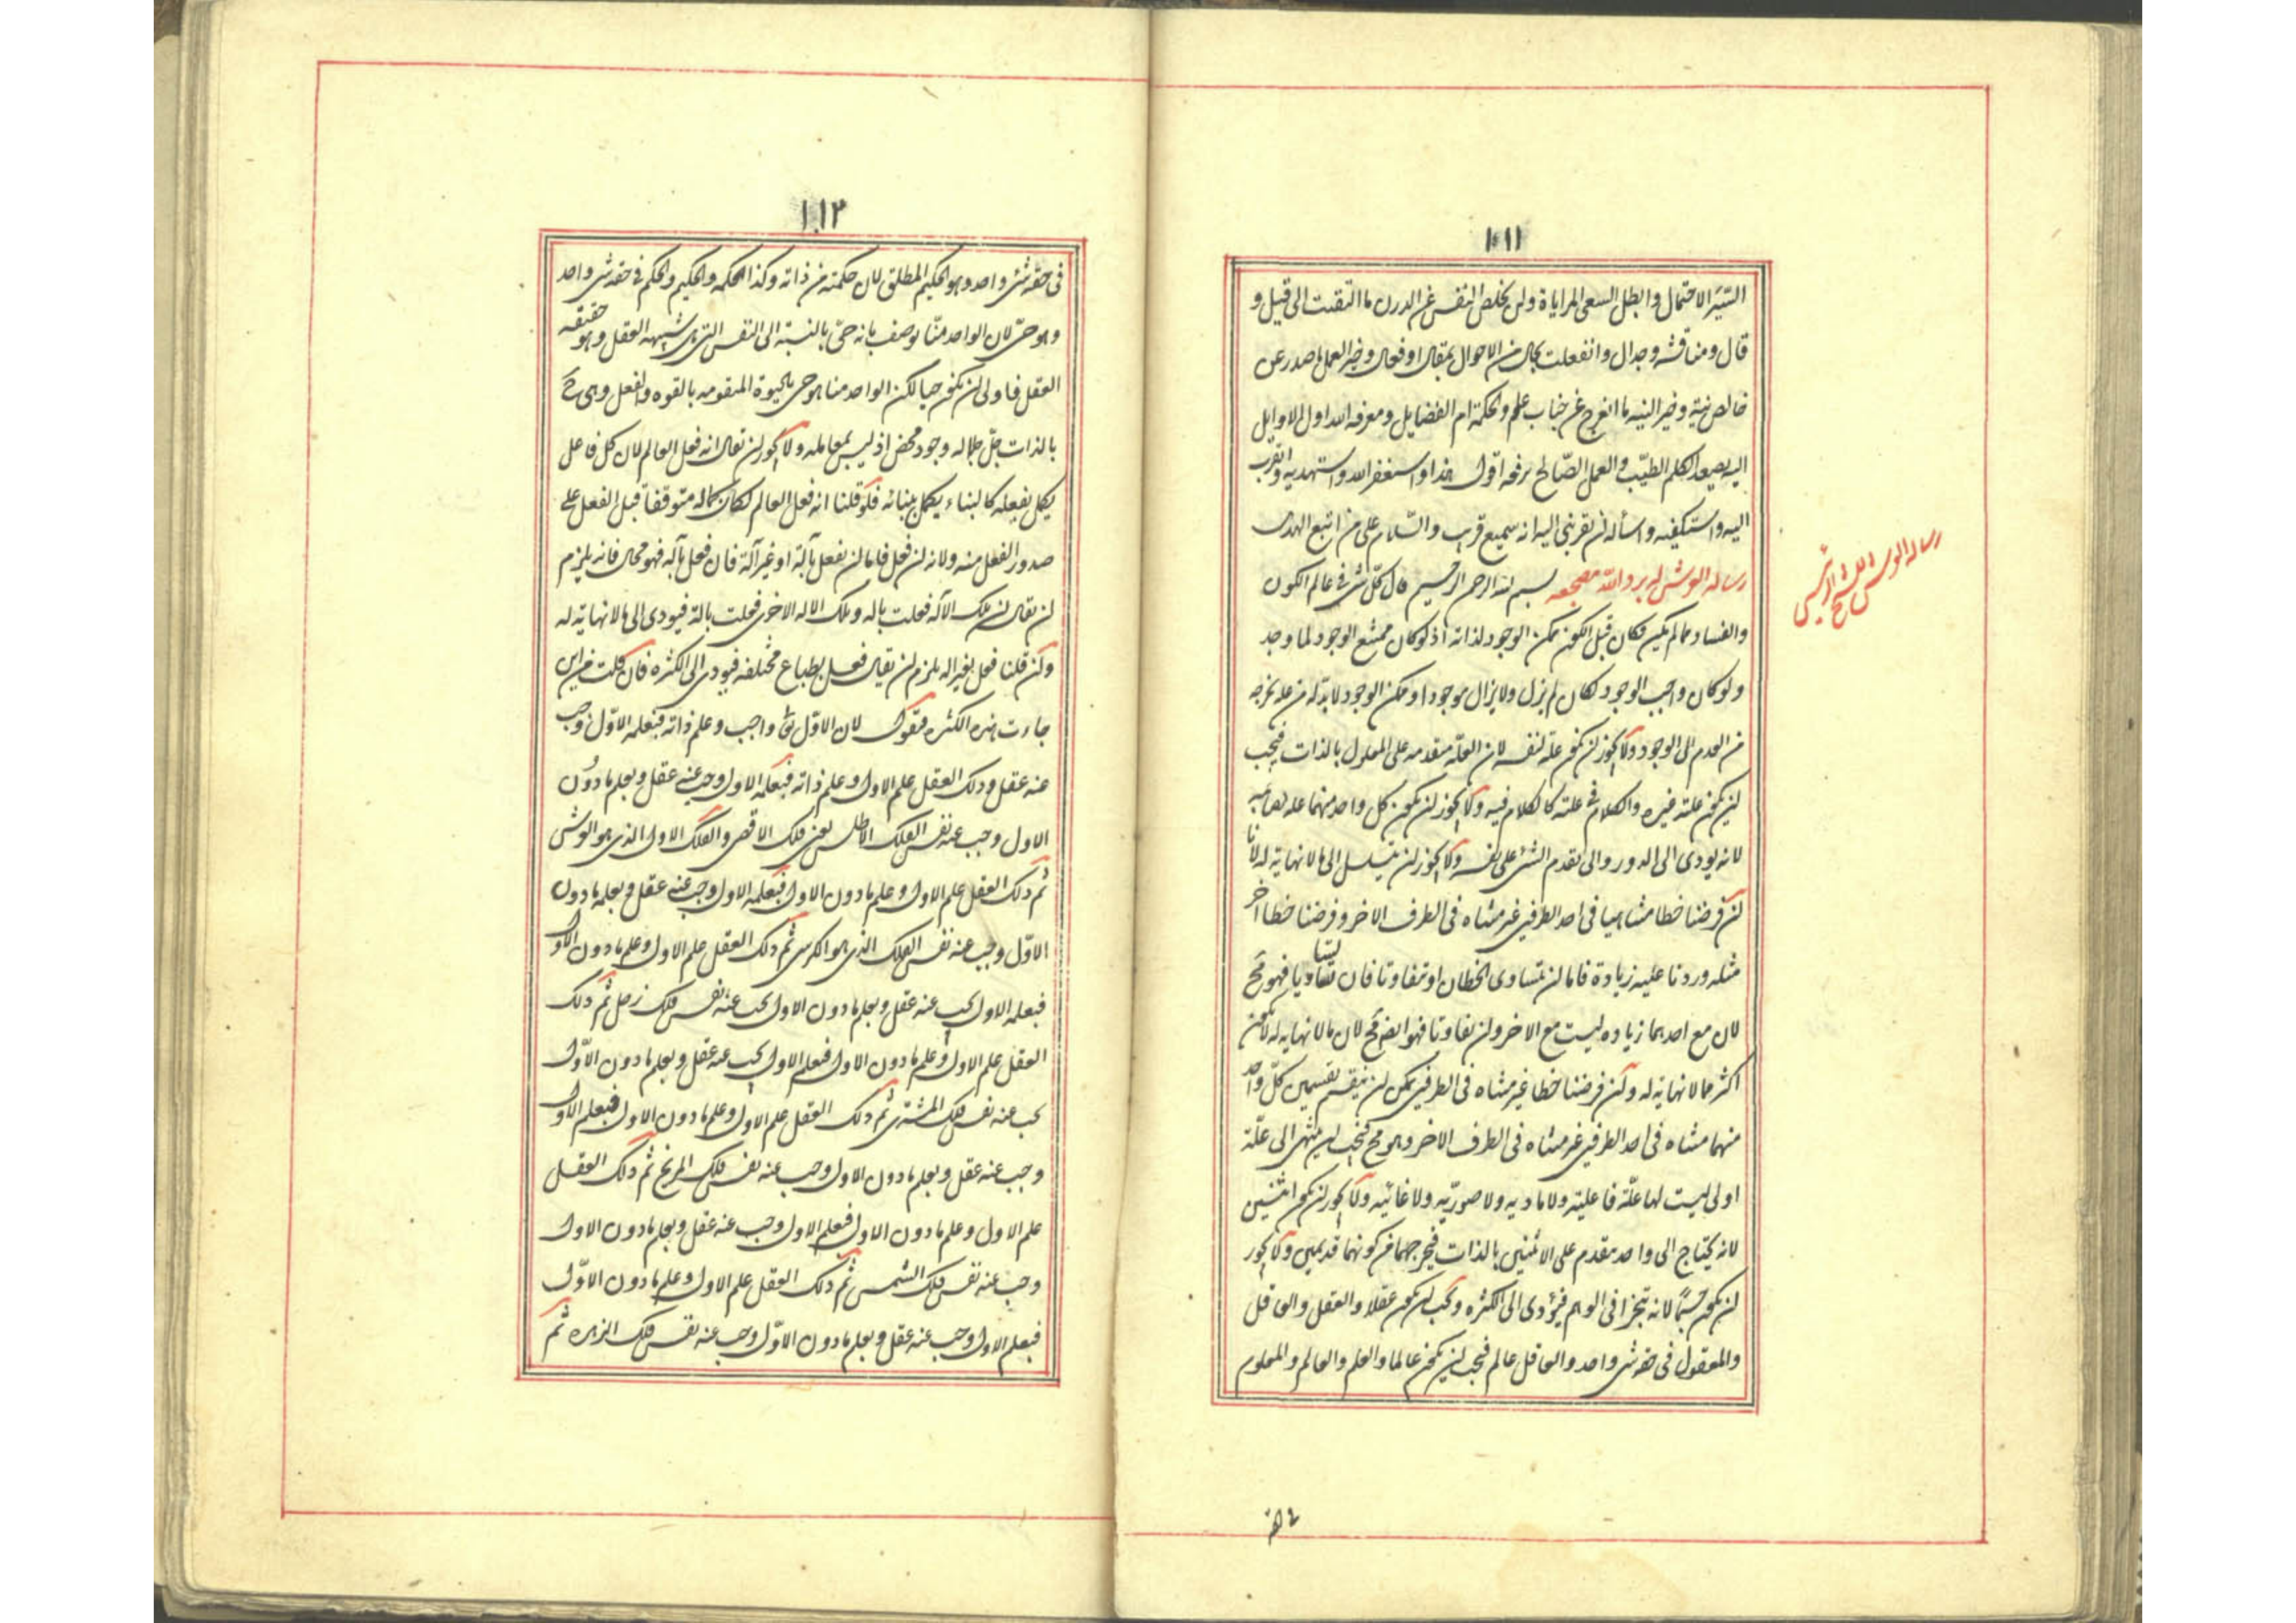 ١٠١١
السّتیر الاحتمال وابطل السعی المرایاة ولن یخلص النفس عن الدرن ما التفتت الی قیل و
قال ومناقشه وجدال وانفعلت بحال من الاحوال بمقال او فعال وخیر العمل ما صدر عن
خالص نیة وخیر النیه ما انفرج عن جناب علم والحکمة ام الفضایل ومعرفه الله اول الاوایل
الیه یصعد الکلم الطیّب والعمل الصّالح یرفعه اقول هذا واستغفر الله واستهدیه واتقرب
الیه واستکفیه واسأله ان یقربنی الیه انه سمیع قریب والسّلام علی من اتبع الهدی
رساله العرش له برد الله مضجعه بسم الله الرحمن الرحیم قال کلّ شی فی عالم الکون
والفساد مما لم یکن فکان قبل الکون ممکن الوجود لذاته اذ لو کان ممتنع الوجود لما وجد
ولو کان واجب الوجود لکان لم یزل ولا یزال موجودا وممکن الوجود لا بدّ له من علة یخرجه
من العدم الی الوجود ولا یجوز ان یکون علة لنفسه لان العلّه متقدمه علی المعلول بالذات فیجب
ان یکون علته غیره والکلام فی علته کالکلام فیه ولا یجوز ان یکون کل واحد منهما علة لصاحبه
لانه یودی الی الدور والی تقدم الشئ علی نفسه ولا یجوز ان یتسلسل الی ما لا نهایة له لانا
ان فرضنا خطا متناهیا فی احد الطرفین غیر متناه فی الطرف الاخر وفرضنا خطا اخر
مثله وردنا علیه زیادة فاما ان یتساوی الخطان او تفاوتا فان تساویا فهو مح
لان مع احدهما زیاده لیست مع الاخر وان تفاوتا فهو ایضا مح لان ما لا نهایه له لا یکون
اکثر مما لا نهایة له وان فرضنا خطا غیر متناه فی الطرفین یمکن ان ینقسم بقسمین کلّ واحد
منهما متناه فی احد الطرفین غیر متناه فی الطرف الاخر وهو مح فیجب ان ینتهی الی علّة
اولی لیست لها علّة فاعلیة ولا مادیه ولا صوریّه ولا غائیه ولا یجوز ان یکون اثنین
لانه یحتاج الی واحد متقدم علی الاثنین بالذات فیخرجهما من کونهما قدیمین ولا یجوز
ان یکون جسمًا لانه یتجزا فی الوهم فیؤدی الی الکثره ویجب ان یکون عقلا والعقل والعاقل
والمعقول فی حقه شی واحد والعاقل عالم فیجب ان یکون عالما والعلم والعالم والمعلوم
رساله العرش للشیخ الرئیس
١٠١٢
فی حقه شئ واحد وهو الحکیم المطلق لان حکمته من ذاته وکذا الحکمه والحکیم والحکم فی حقه شی واحد
وهو حیّ لان الواحد منّا یوصف بانه حیّ بالنسبة الی النفس التی هی شبیهه العقل وهو حقیقه
العقل فاولی ان یکون حیا لکن الواحد منا هو حی بالحیوة المتقومه بالقوه والفعل وهی حی
بالذات جلّ جلاله وجود محض اذ لیس بمعا مله ولا یجوز ان یقال انه فعل العالم لان کل فاعل
یکمل بفعله کالبناء یکمل ببنائه فلو قلنا انه فعل العالم لکان کماله متوقفا قبل الفعل علی
صدور الفعل منه ولانه لن فعل فاما ان یفعل بآلة او غیر آلة فان فعل بآلة فهو محال فانه یلزم
ان یقال ان تلک الآله فعلت باله وتلک الاله الاخری فعلت بالة فیودی الی ما لا نهایة له
وان قلنا فعل بغیر اله یلزم ان یقال فعل بطباع مختلفه فیودی الی الکثره فان قلت من این
جاءت هذه الکثره فنقول لان الاوّل تعالی واجب وعلم ذاته فبعلمه الاوّل وجب
عنه عقل وذلک العقل علم الاول وعلم ذاته فبعلمه الاول وجب عنه عقل وبعلم ما دون
الاول وجب عنه نفس الفلک الاطلس یعنی فلک الاقصی والفلک الاول الذی هو العرش
ثم ذلک العقل علم الاول وعلم ما دون الاول فبعلمه الاول وجب عنه عقل وبعلمه ما دون
الاوّل وجب عنه نفس الفلک الذی هو الکرسی ثم ذلک العقل علم الاول وعلم ما دون الاول
فبعلمه الاول یجب عنه عقل وبعلم ما دون الاول یجب عنه نفس فلک زحل ثم ذلک
العقل علم الاول وعلم ما دون الاول فبعلم الاول یجب عنه عقل وبعلم ما دون الاوّل
یجب عنه نفس فلک المشتری ثم ذلک العقل علم الاول وعلم ما دون الاول فبعلم الاول
وجب عنه عقل وبعلم ما دون الاول وجب عنه نفس فلک المریخ ثم ذلک العقل
علم الاول وعلم ما دون الاول فبعلم الاول وجب عنه عقل وبعلم ما دون الاول
وجب عنه نفس فلک الشمس ثم ذلک العقل علم الاول وعلم ما دون الاوّل
فبعلم الاول وجب عنه عقل وبعلم ما دون الاوّل وجب عنه نفس فلک الزهره ثم